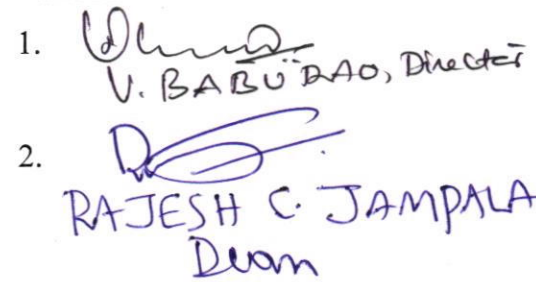 1.
V. BABU RAO, Director
2.
RAJESH C. JAMPALA
Dean